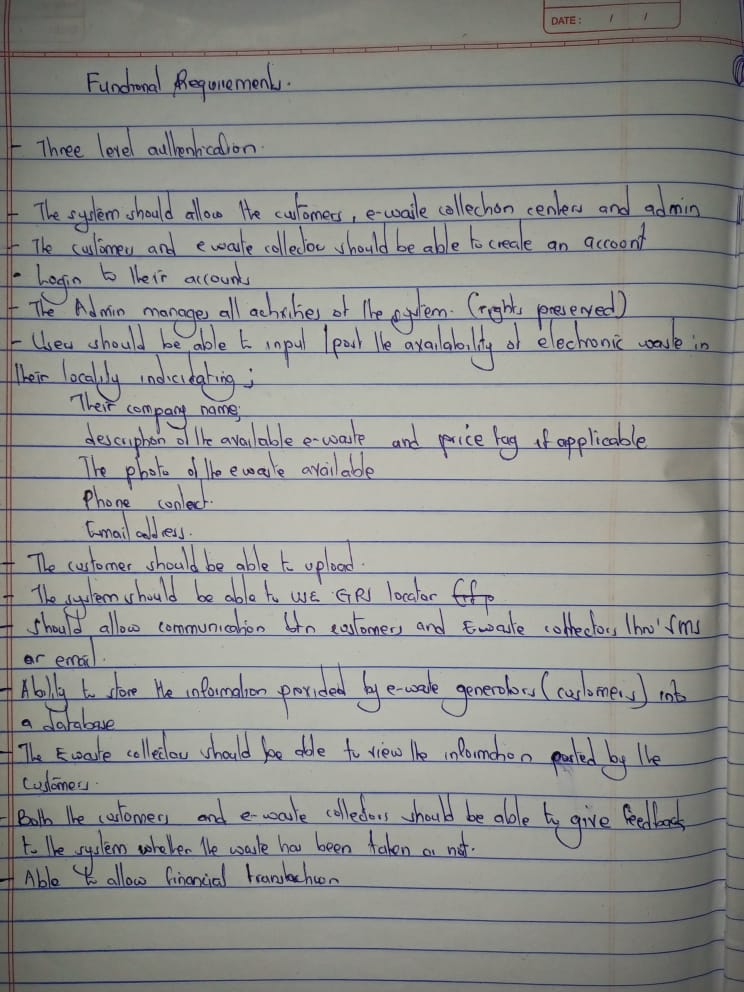 DATE: / /
Functional Requirements.
- Three level authentication.
- The system should allow the customers, e-waste collection centers and admin
- The customers and e waste collector should be able to create an account
• Login to their accounts
- The Admin manages all activities of the system. (rights preserved)
- Users should be able to input / post the availability of electronic waste in
their locality indicidating;
Their company name;
description of the available e-waste and price tag if applicable
The photo of the e waste available
Phone contact.
Email address.
- The customer should be able to upload.
- The system should be able to use GPS locator
- Should allow communication btn customers and Ewaste collectors thro' sms
or email.
- Ability to store the information provided by e-waste generators (customers) into
a database
- The Ewaste collectors should be able to view the information posted by the
customers.
- Both the customers and e-waste collectors should be able to give feedback
to the system whether the waste has been taken or not.
- Able to allow financial transaction